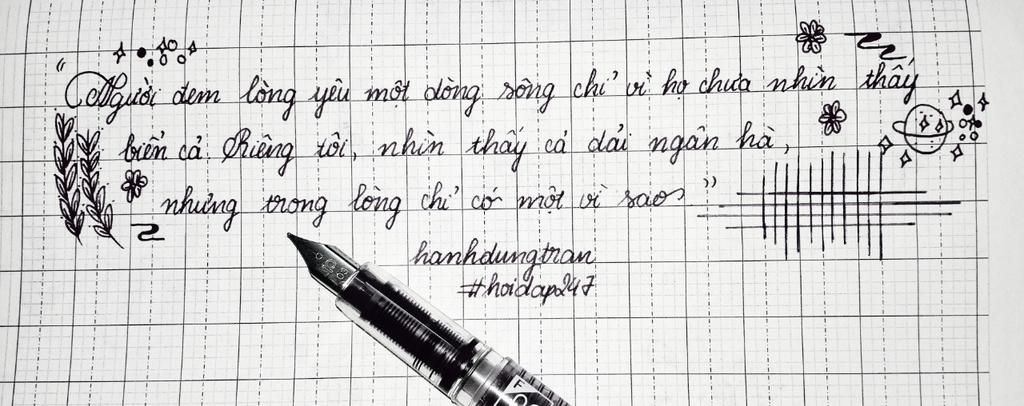 “Người đem lòng yêu một dòng sông chỉ vì họ chưa nhìn thấy
biển cả. Riêng tôi, nhìn thấy cả dải ngân hà,
nhưng trong lòng chỉ có một vì sao”
hanhdungtran
#hoidap247